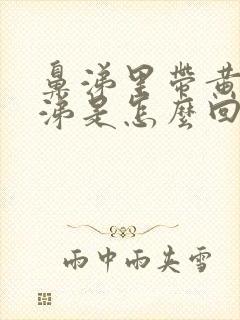 鼻涕里带黄
涕是怎麼回
雨中雨夹雪